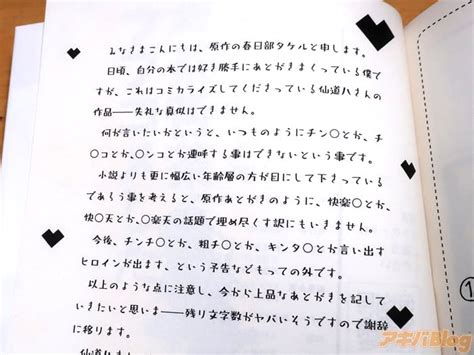 みなさまこんにちは、原作の春日部タケルと申します。
日頃、自分の本では好き勝手にあとがきまくっている僕で
すが、これはコミカライズしてくださっている仙道八さんの
作品――失礼な真似はできません。
何が言いたいかというと、いつものようにチン〇とか、チ
〇コとか、〇ンコとか連呼する事はできないという事です。
小説よりも更に幅広い年齢層の方が目にして下さっている
であろう事を考えると、原作あとがきのように、快楽〇とか、
快〇天とか、〇楽天の話題で埋め尽くす訳にもいきません。
今後、チンチ〇とか、粗チ〇とか、キンタ〇とか言い出す
ヒロインが出ます、という予告などもっての外です。
以上のような点に注意し、今から上品なあとがきを記して
いきたいと思いま――残り文字数がヤバいそうですので謝辞
に移ります。
仙道八さん
アキバBlog